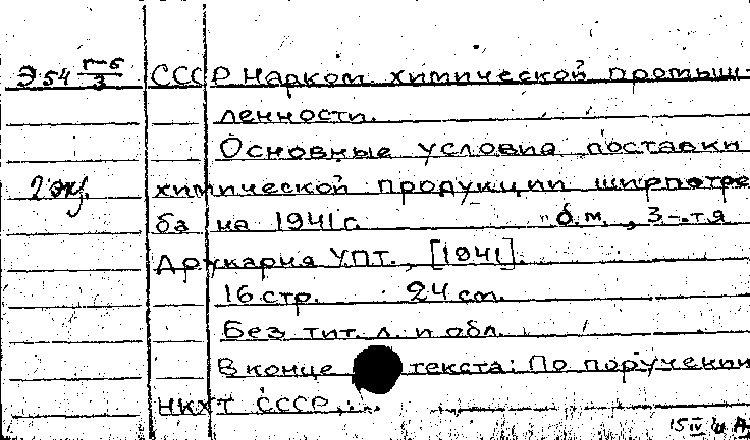 Э54 п-6/3 СССР Нарком. химической промыш-
ленности.
Основные условия поставки
2 экз. химической продукции ширпотре-
ба на 1941 г. б.м., 3-тя
Друкарня УПТ., [1941].
16 стр. 24 см.
Без тит. л. и обл.
В конце текста: По поручению
НКХТ СССР,...
15 IV